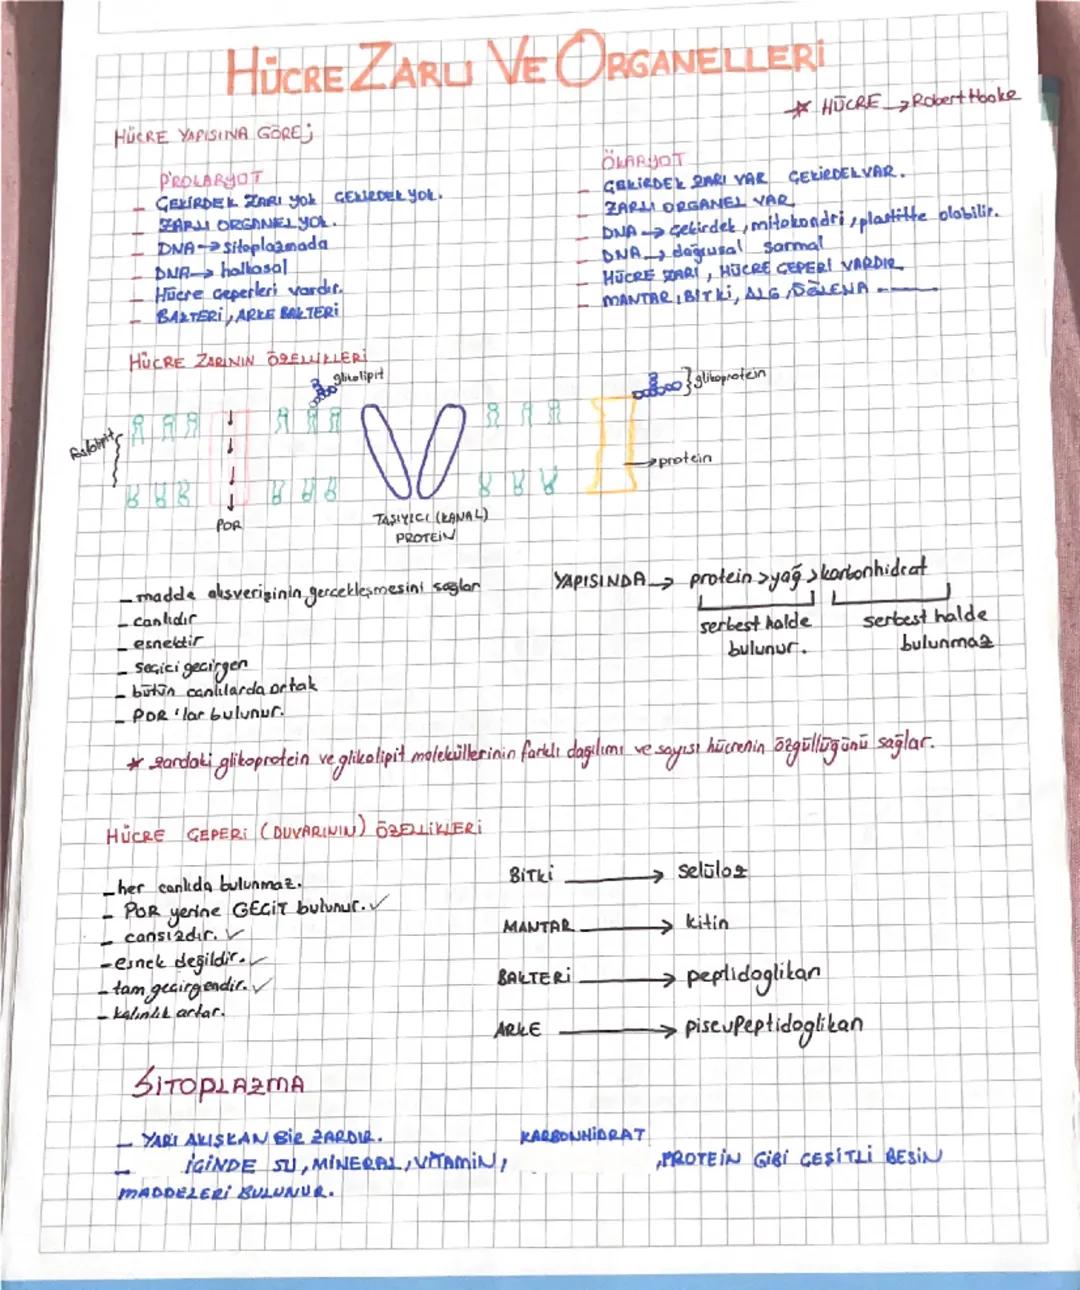 HÜCRE ZARLI VE ORGANELLERİ
* HÜCRE → Robert Hooke
HÜCRE YAPISINA GÖRE;
PROLARYOT
- ÇEKİRDEK ZARI YOK ÇEKİRDEK YOK.
- ZARLI ORGANEL YOK.
- DNA → sitoplazmada
- DNA → halkasal
- Hücre çeperleri vardır.
- BAKTERİ, ARKE BAKTERİ
ÖKARYOT
- ÇEKİRDEK ZARI VAR ÇEKİRDEK VAR.
- ZARLI ORGANEL VAR
- DNA → Çekirdek, mitokondri, plastitte olabilir.
- DNA → doğrusal sarmal
- HÜCRE ZARI, HÜCRE ÇEPERİ VARDIR
- MANTAR, BİTKİ, ALG,
HÜCRE ZARININ ÖZELLİKLERİ
glikolipit
glikoprotein
fosfolipit
protein
POR
TAŞIYICI (KANAL)
PROTEİN
- madde alışverişinin gerçekleşmesini sağlar
- canlıdır
- esnektir
- seçici geçirgen
- bütün canlılarda ortak
- POR 'lar bulunur.
YAPISINDA → protein > yağ > karbonhidrat
serbest halde
bulunur.
serbest halde
bulunmaz
* zardaki glikoprotein ve glikolipit moleküllerinin farklı dağılımı ve sayısı hücrenin özgüllüğünü sağlar.
HÜCRE ÇEPERİ (DUVARININ) ÖZELLİKLERİ
- her canlıda bulunmaz.
- POR yerine GEÇİT bulunur. ✓
- cansızdır. ✓
- esnek değildir. ✓
- tam geçirgendir. ✓
- kalınlık artar.
BİTKİ → selüloz
MANTAR → kitin
BAKTERİ → peptidoglikan
ARKE → piseupeptidoglikan
SİTOPLAZMA
- YARI AKIŞKAN BİR ZARDIR.
- İÇİNDE SU, MİNERAL, VİTAMİN, KARBONHİDRAT, PROTEİN GİBİ ÇEŞİTLİ BESİN
MADDELERİ BULUNUR.